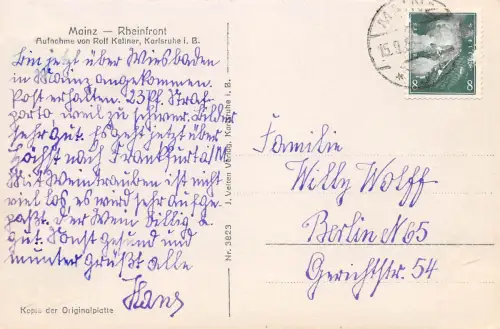 Mainz — Rheinfront
Aufnahme von Rolf Kellner, Karlsruhe i. B.
Bin jetzt über Wiesbaden
in Mainz angekommen.
Post erhalten. 23 Pf. Straf-
porto, weil zu schwer. Bilder
sehr gut. Es geht jetzt über
Höchst nach Frankfurt a/M
Mit Weintrauben ist nicht
viel los, es wird sehr aufge-
paßt. der Wein billig u.
gut. Sonst gesund und
munter grüßt alle
Hans
Kopie der Originalplatte
Nr. 3823 J. Velten Verlag, Karlsruhe i. B.
MAINZ
15.9.
8 8
Familie
Willy Wolff
Berlin N 65
Gerichtstr. 54